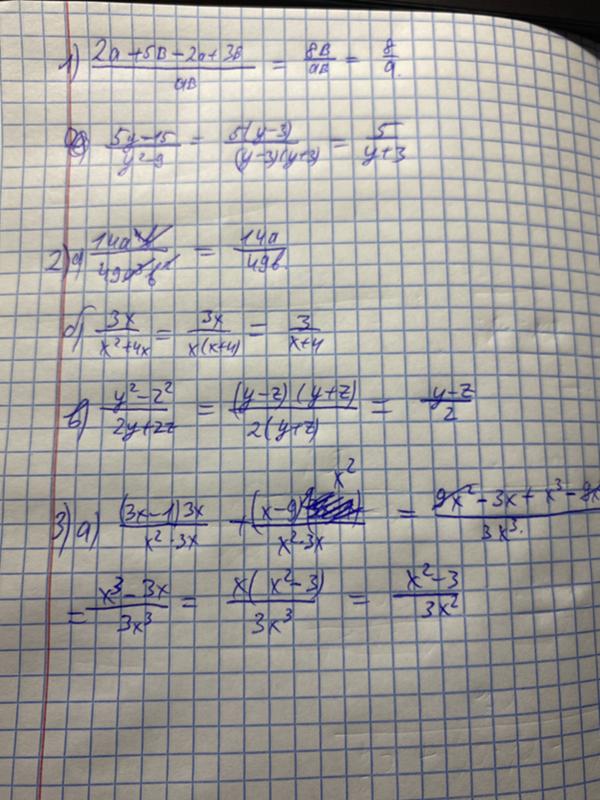 1) (2a + 5в - 2a + 3в)/(aв) = 8в/aв = 8/a.
(5y - 15)/(y² - 9) = 5(y - 3)/((y - 3)(y + 3)) = 5/(y + 3)
2) a) = 14a/49в.
б) 3x/(x² + 4x) = 3x/(x(x + 4)) = 3/(x + 4)
в) (y² - z²)/(2y + 2z) = (y - z)(y + z)/(2(y + z)) = (y - z)/2
3) a) (3x - 1)3x/(x² · 3x) + (x - 9) x²/(x² · 3x) = (9x² - 3x + x³ - 9x/3x³.
= (x³ - 3x)/3x³ = x(x² - 3)/3x³ = (x² - 3)/3x²